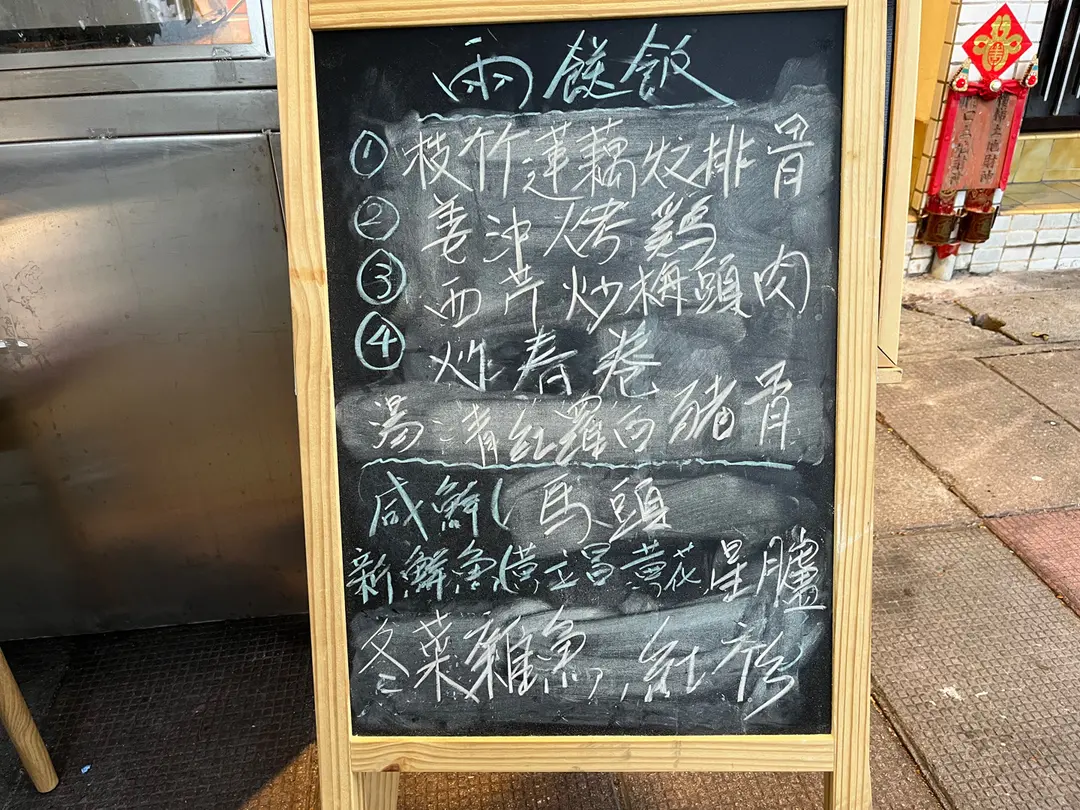 雨餸飯
① 枝竹蓮藕炆排骨
② 姜沖烤鷄
③ 西芹炒梅頭肉
④ 炸春卷
湯 清紅蘿白豬骨
咸鮮 馬頭
新鮮魚 黃立昌 黃花 星鱸
冬菜雜魚, 紅衫